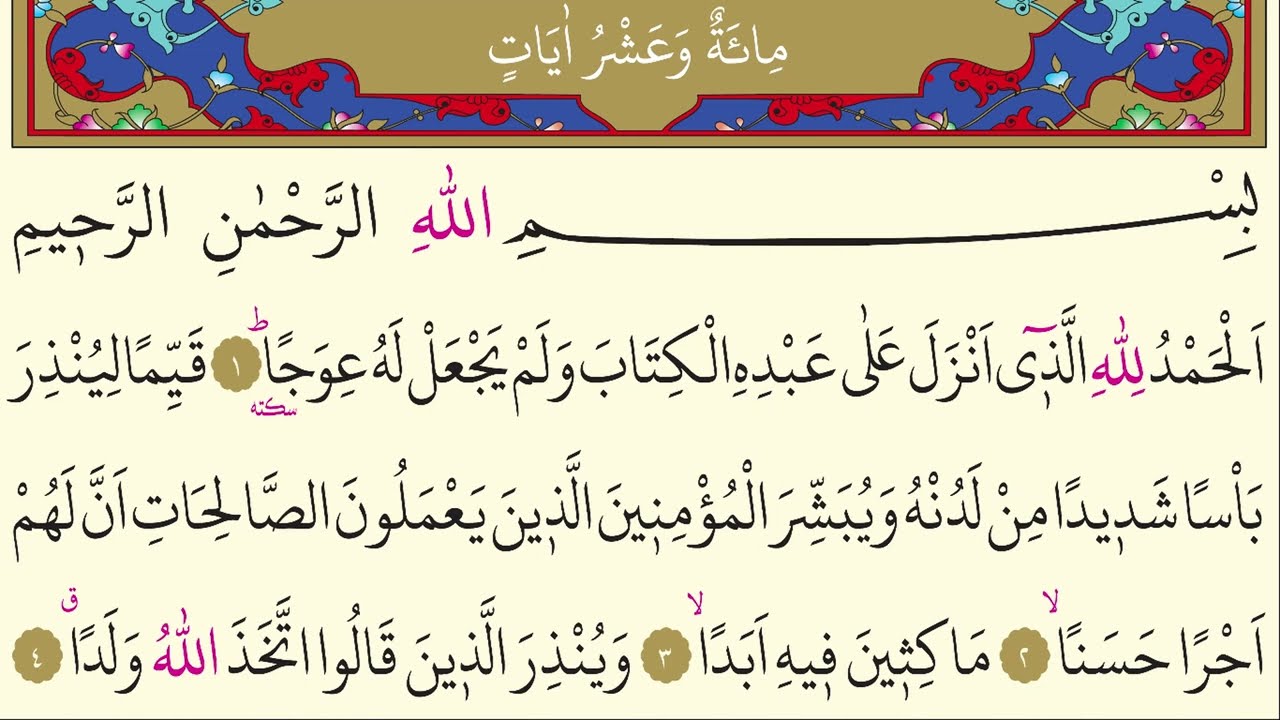 مِائَةٌ وَعَشْرُ اٰيَاتٍ
بِسْمِ اللّٰهِ الرَّحْمٰنِ الرَّح۪يمِ
اَلْحَمْدُ لِلّٰهِ الَّذ۪ٓي اَنْزَلَ عَلٰى عَبْدِهِ الْكِتَابَ وَلَمْ يَجْعَلْ لَهُ عِوَجًاۜ سكته ١ قَيِّمًا لِيُنْذِرَ
بَأْسًا شَد۪يدًا مِنْ لَدُنْهُ وَيُبَشِّرَ الْمُؤْمِن۪ينَ الَّذ۪ينَ يَعْمَلُونَ الصَّالِحَاتِ اَنَّ لَهُمْ
اَجْرًا حَسَنًاۙ ٢ مَاكِث۪ينَ ف۪يهِ اَبَدًاۙ ٣ وَيُنْذِرَ الَّذ۪ينَ قَالُوا اتَّخَذَ اللّٰهُ وَلَدًاۗ ٤